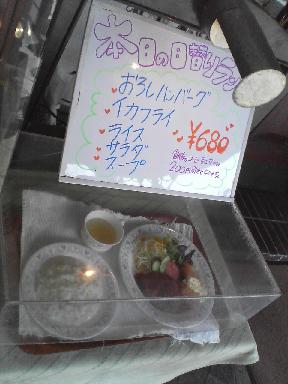 本日の日替りラン
おろしハンバーグ
イカフライ
ライス
サラダ
スープ
¥680